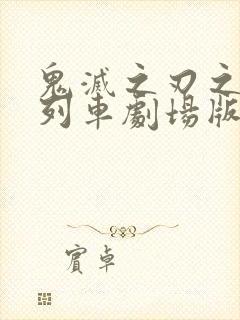 鬼滅之刃之
列車劇場版
賓卓